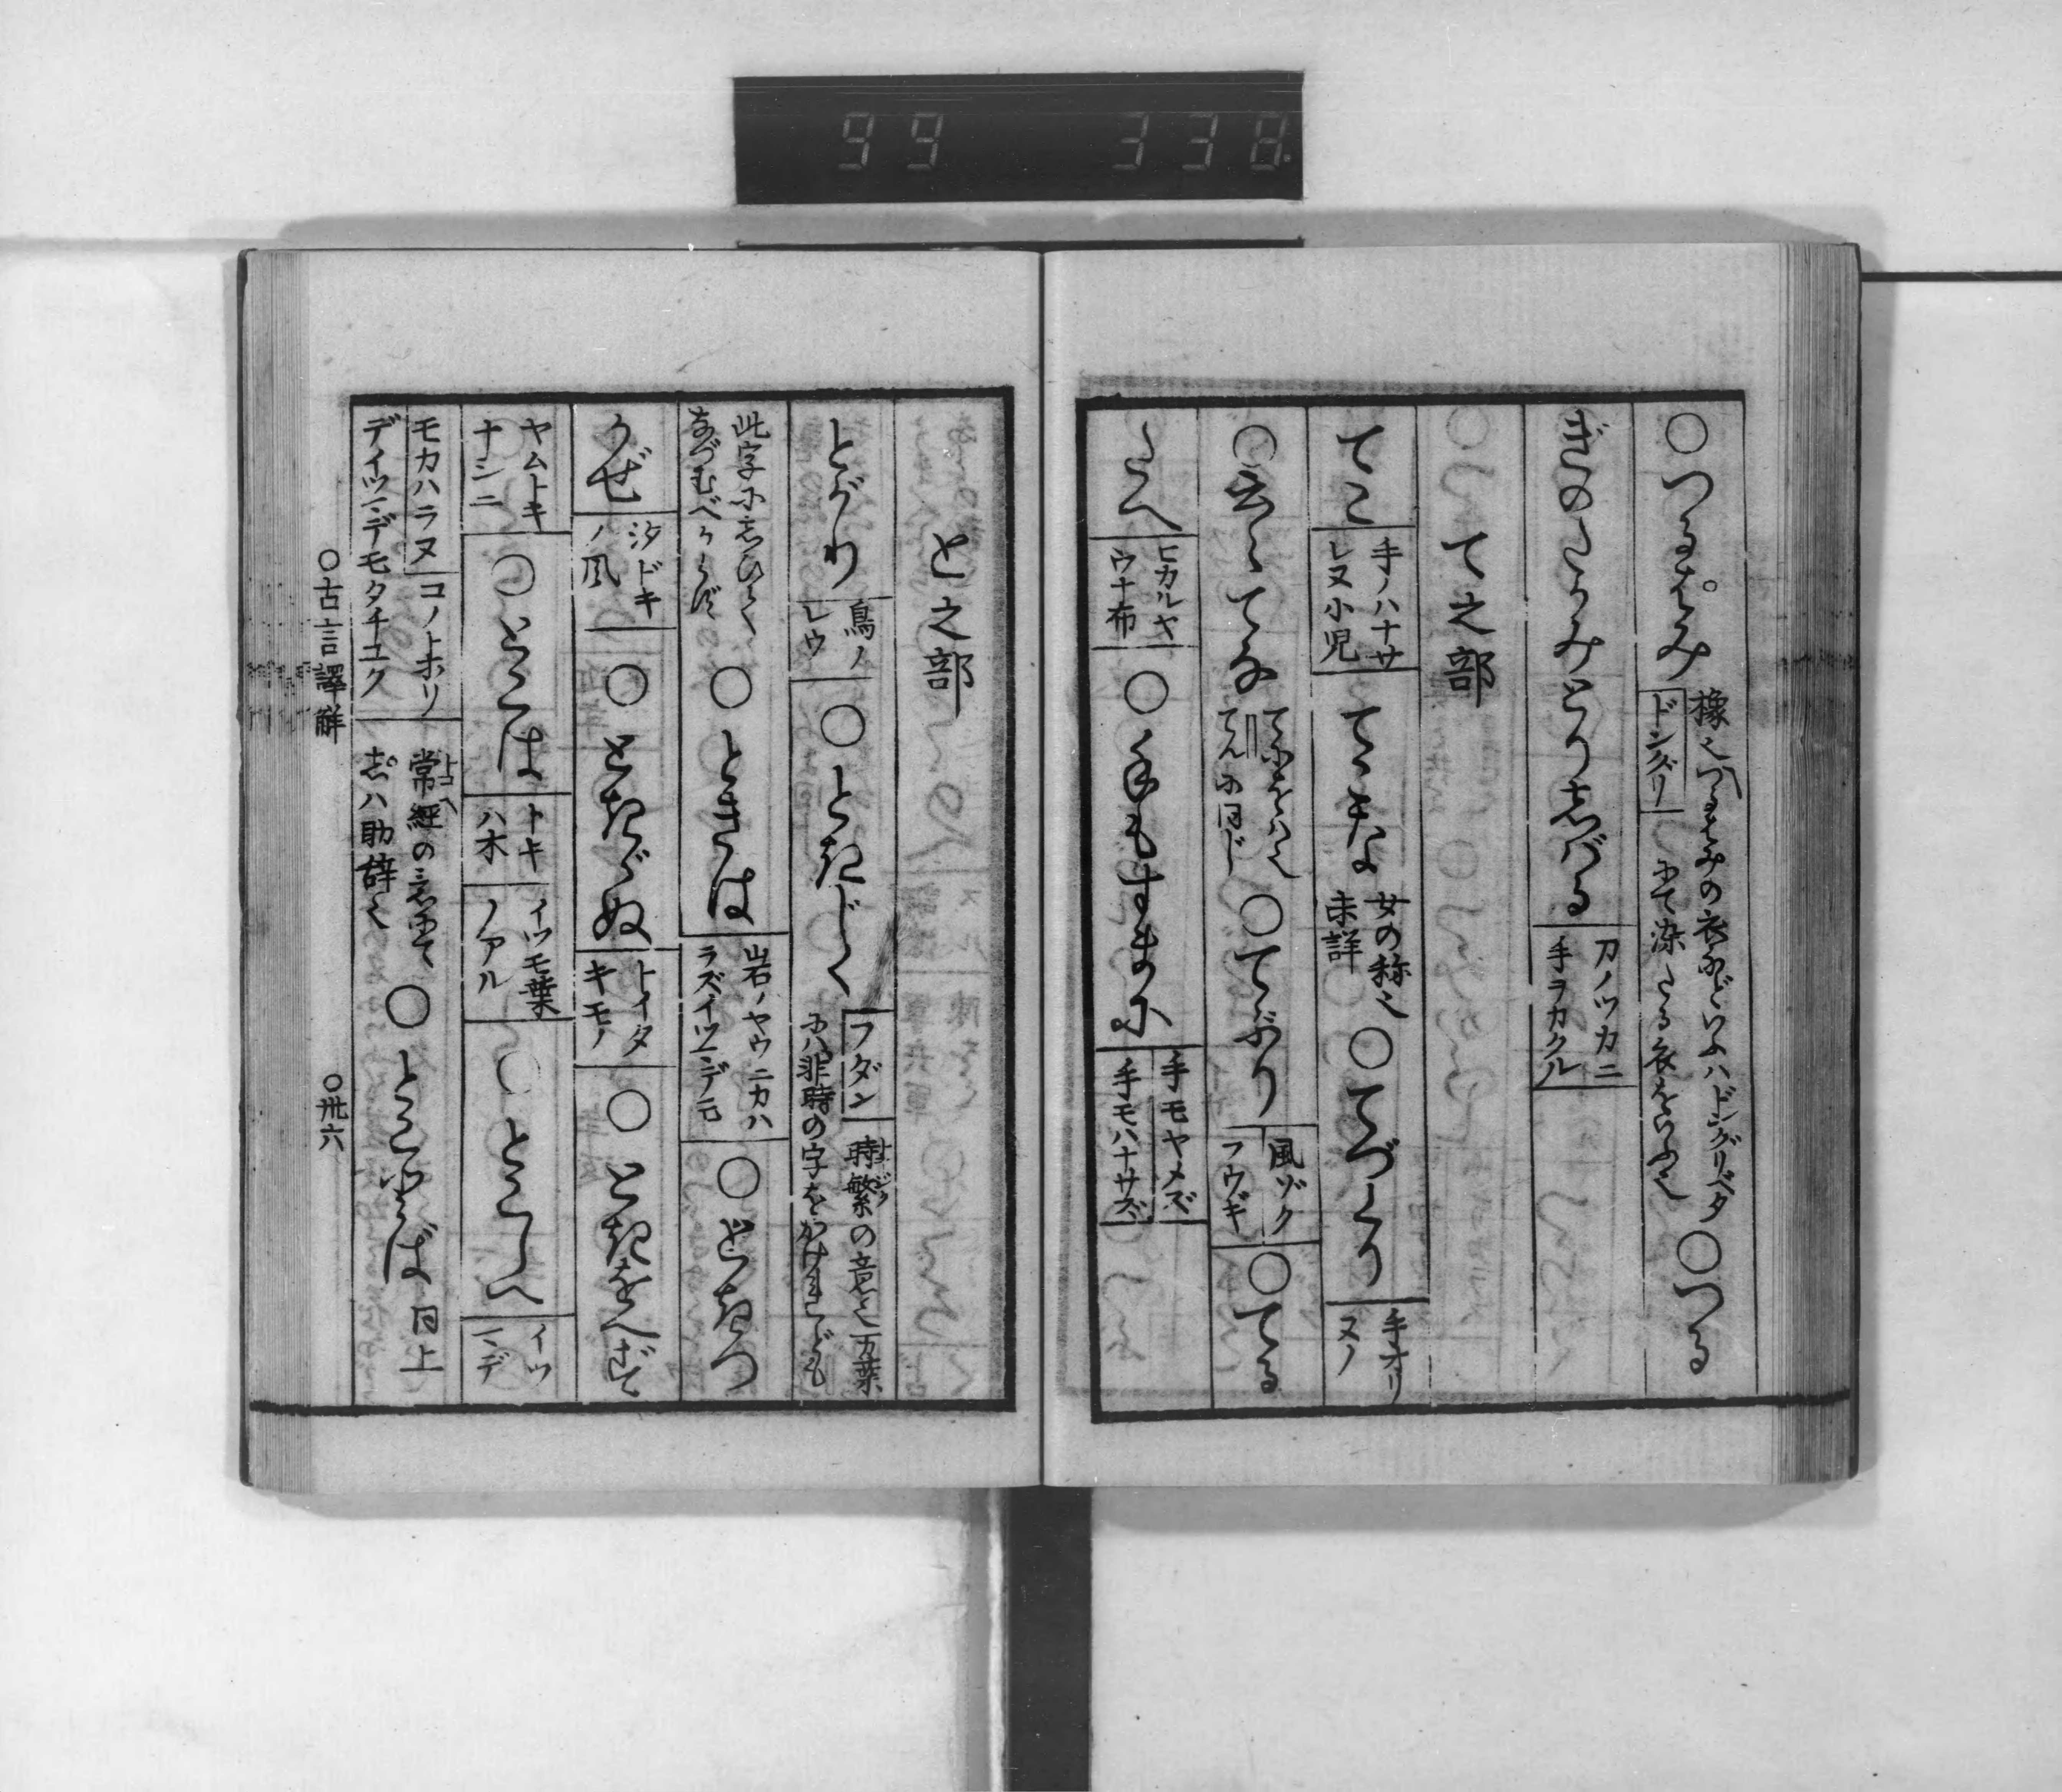 99 338
○つるばみ 橡也つるばみの衣などいふハドングリベタ
ドングリ にて染たる衣をいふ也 ○つる
ぎのたかみとりしばる 刀ノツカニ
手ヲカクル
て之部
てこ 手ノハナサ
レヌ小児 てこな 女の称也
未詳 ○てづくり 手オリ
ヌノ
○てな てにをは也
てんに同じ ○てぶり 風ゾク
フウギ ○てる
たへ ヒカルヤ
ウナ布 ○手もすまに 手モヤメズ
手モハナサズ
と之部
とがり 鳥ノ
レウ ○ときじく フダン 時繁の意也万葉
に非時の字をかけれども
此字にしひて
なづむべからず ○ときは 岩ノヤウニカハ
ラズイツマデモ ○ときつ
かぜ 汐ドキ
ノ風 ○ときぎぬ トイタ
キモノ ○ときをへず
ヤムトキ
ナシニ ○とこは トキ
ハ木 イツモ葉
ノアル ○とこしへ イツ
マデ
モカハラヌ コノトホリ
デイツマデモタチユク 常経の意にて
しハ助辞也 ○とこよ 同上
○古言譯解
○丗六